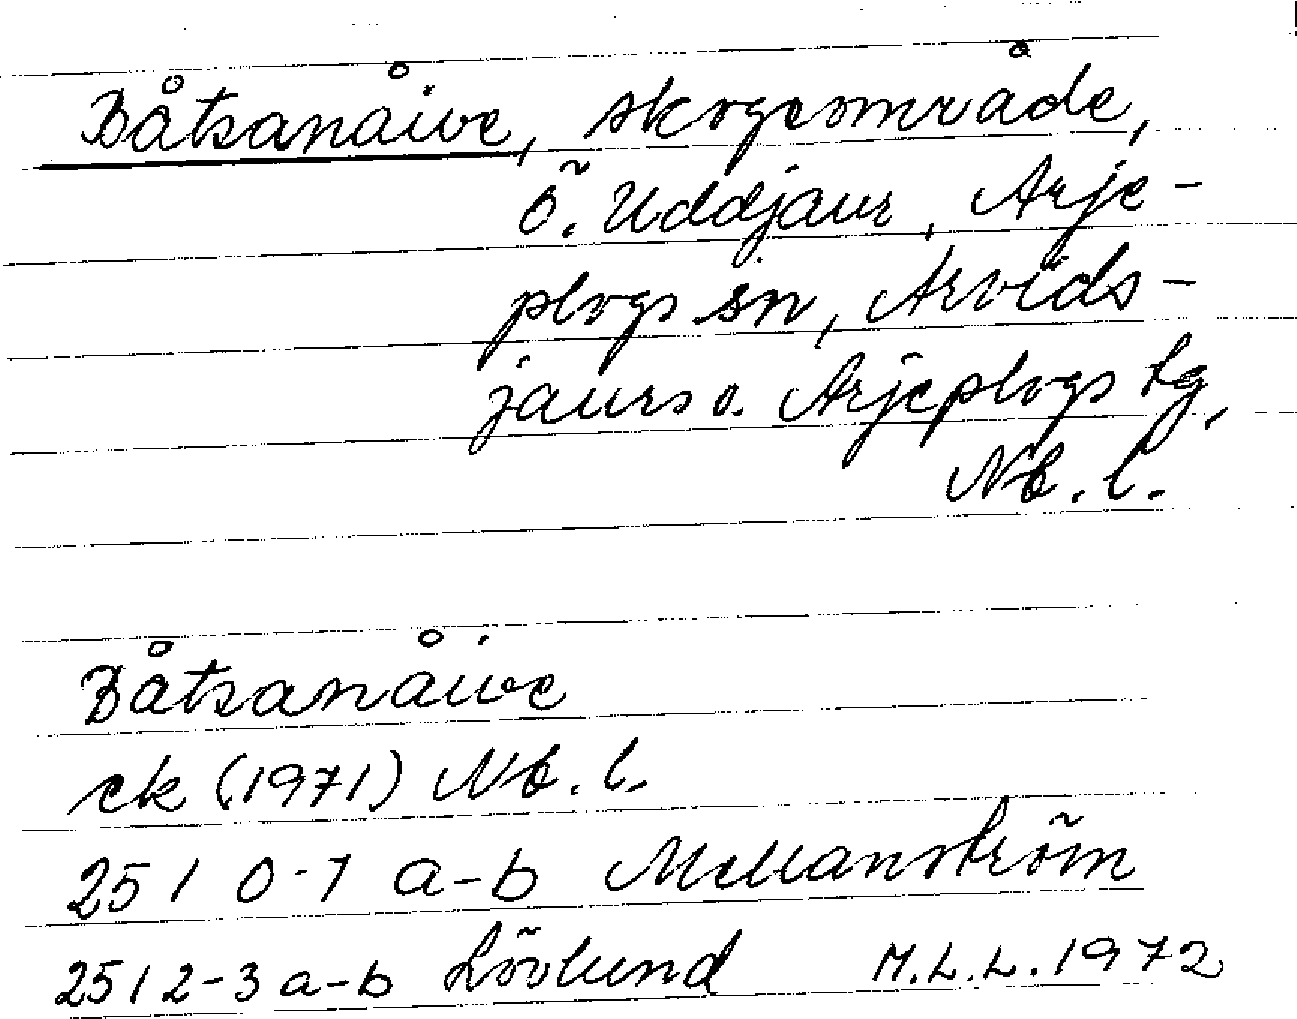 Båtsanåive, skogsområde,
ö. Uddjaur, Arje-
plogs sn, Arvids-
jaurs o. Arjeplogs tg,
Nb. l.
Båtsanåive
ek (1971) Nb. l.
251 0-1 a-b Mellanström
2512-3 a-b Lövlund M.L.L. 1972